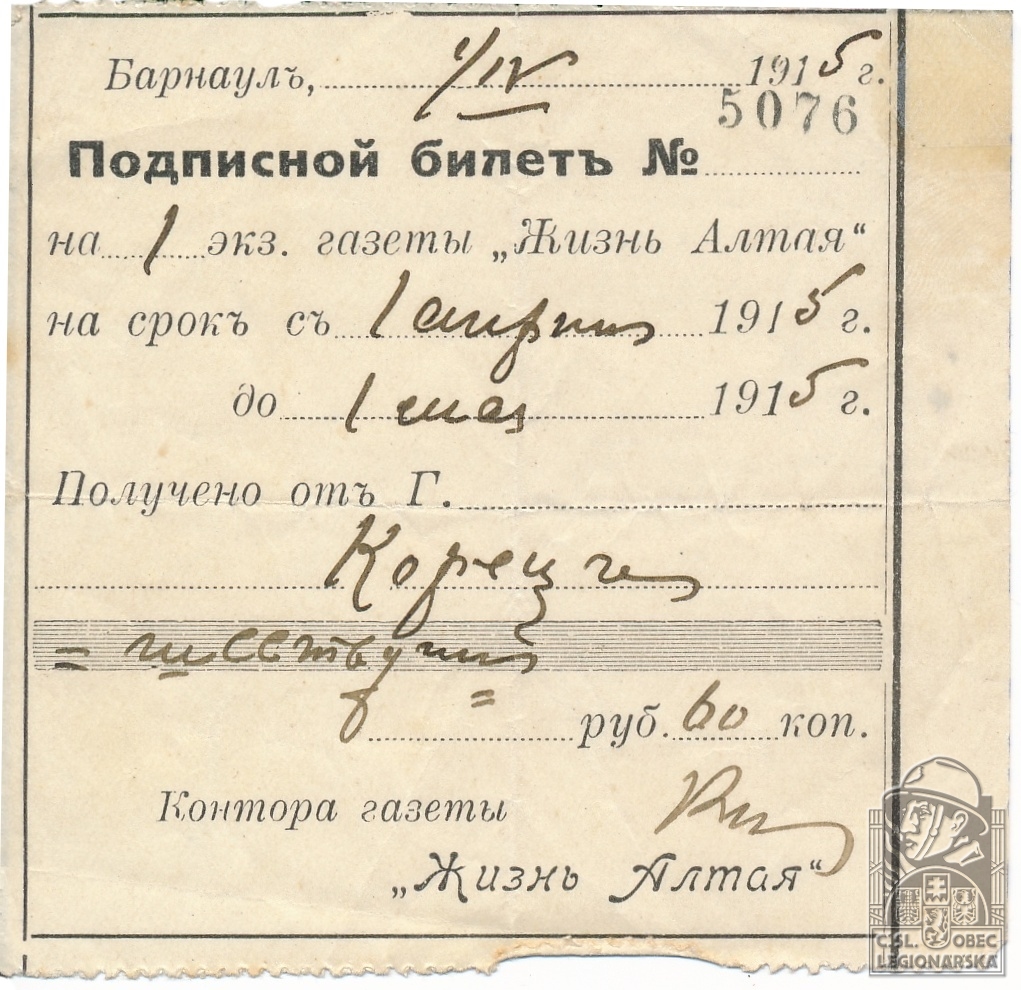 Барнаулъ, 1/IV 1915 г.
5076
Подписной билетъ №
на 1 экз. газеты „Жизнь Алтая“
на срокъ съ 1 апрѣля 1915 г.
до 1 мая 1915 г.
Получено отъ Г.
=
руб. 60 коп.
Контора газеты
„Жизнь Алтая“
ČSL. OBEC
LEGIONÁŘSKÁ